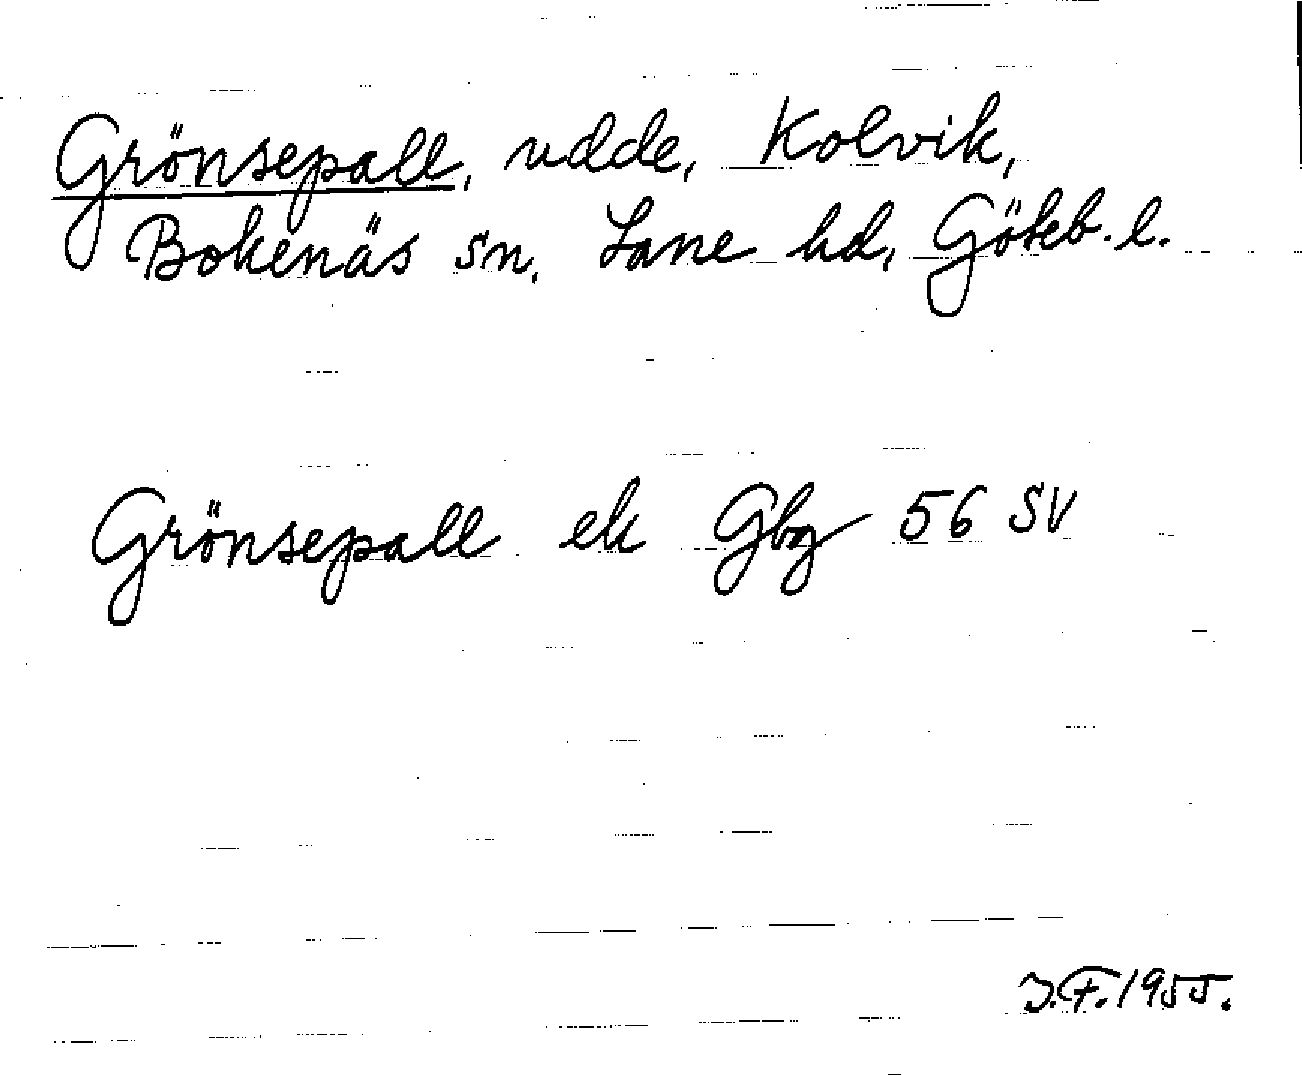 Grönsepall, udde, Kolvik,
Bokenäs sn. Lane hd, Göteb. l.
Grönsepall ek Gbg 56 SV
J.F. 1955.